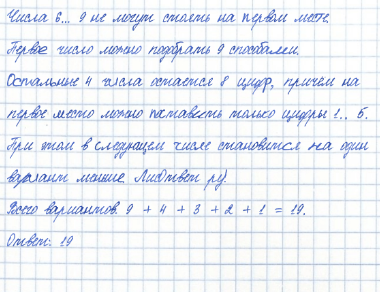 Числа 6... 9 не могут стоять на первом месте.
Первое число можно подобрать 9 способами.
Остальные 4 числа остается 8 цифр, причём на
первое место можно поставить только цифры 1.. 5.
При этом в следующем числе становится на один
вариант меньше.
Всего вариантов: 9 + 4 + 3 + 2 + 1 = 19.
Ответ: 19